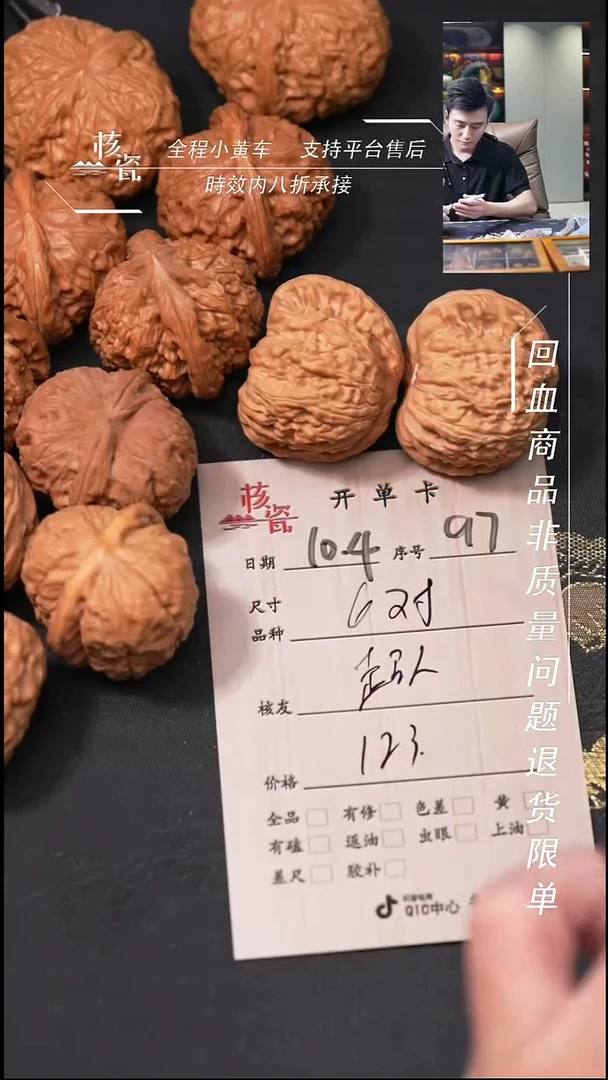 核瓷
全程小黄车 支持平台售后
時效内八折承接
回血商品非质量问题退货限单
核瓷
开单卡
日期 104 序号 97
尺寸
品种 6对
核友 超人
价格 123.
全品 有修 色差 黄
有磕 返油 虫眼 上油
差尺 胶补
QIC中心